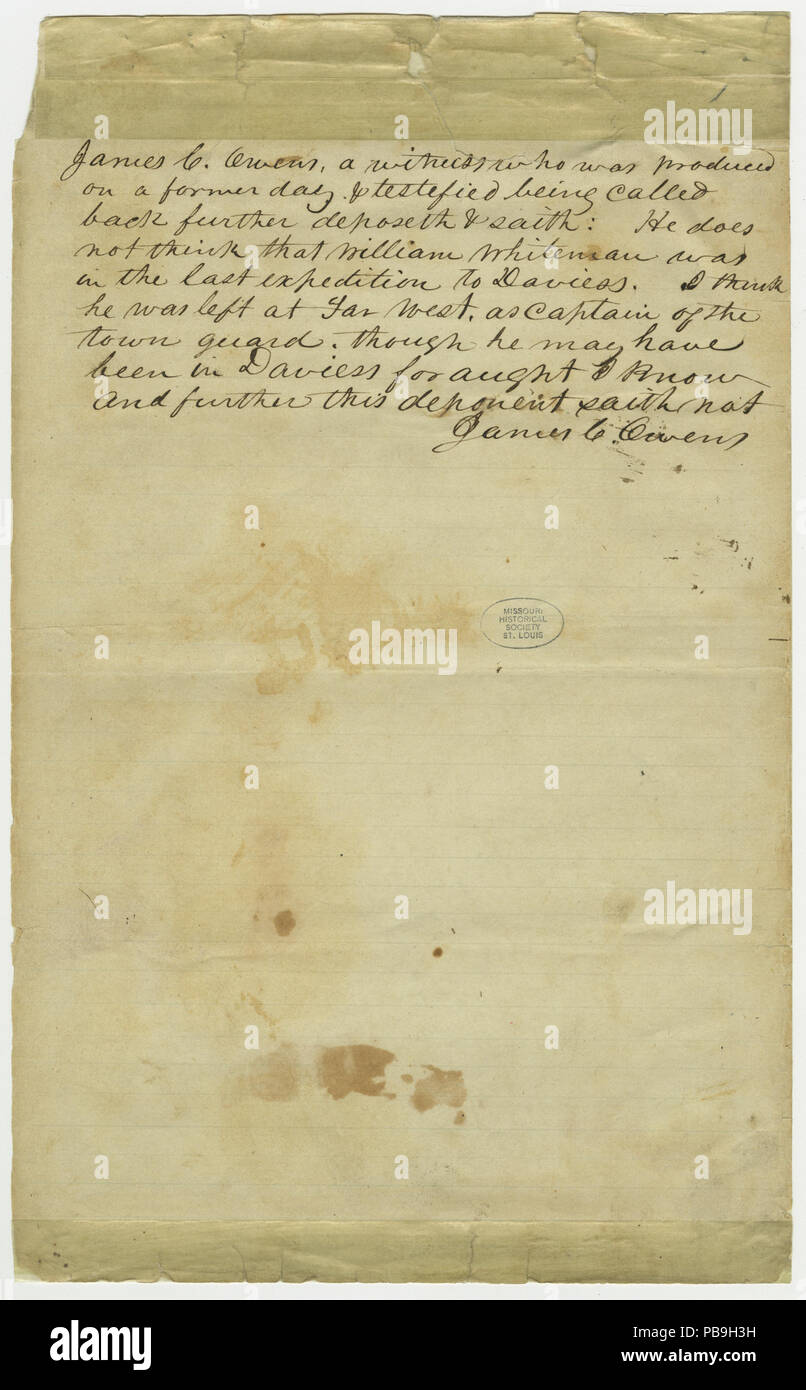 James C. Owens, a witness who was produced
on a former day & testefied being called
back further deposeth & saith: He does
not think that William Whiteman was
in the last expedition to Daviess. I think
he was left at Far West, as Captain of the
town guard. though he may have
been in Daviess for aught I know
And further this deponent saith not
James C. Owens
MISSOURI
HISTORICAL
SOCIETY
ST. LOUIS
alamy
alamy
a
a
a
a
a
a
a
a
a
a
a
a
alamy
Image ID: PB9H3H
www.alamy.com